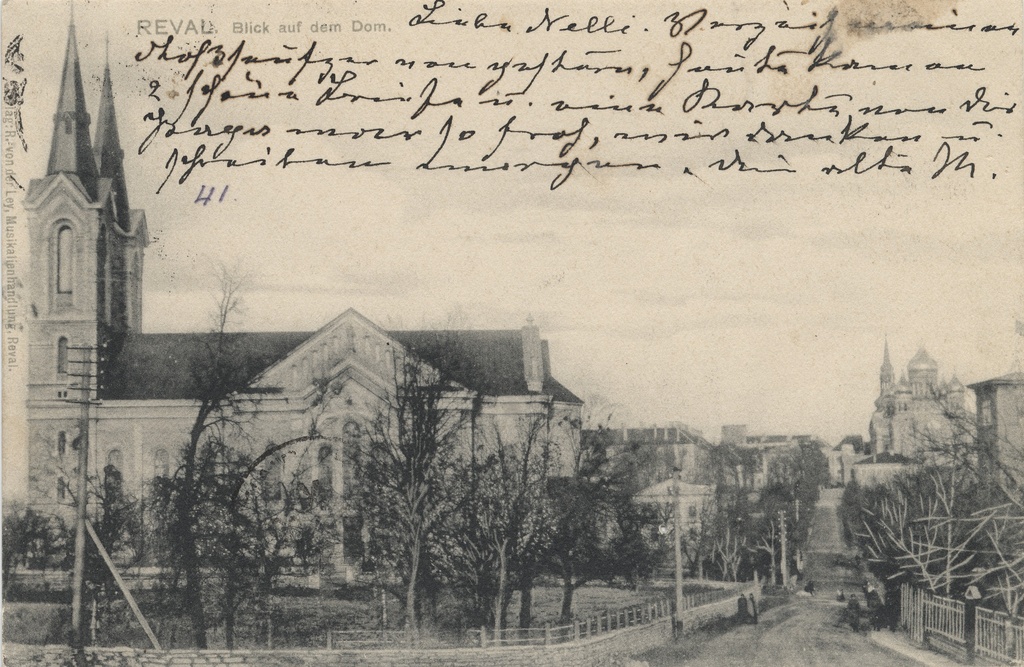 REVAL. Blick auf dem Dom.
Liebe Nelli. Verzeih meinen
Stoßseufzer von gestern, heute kamen
2 schöne Briefe u. eine Karte von Dir
Papa war so froh, wir danken u.
schreiben morgen. Dein alte M.
41.
Verlag: R. von der Ley, Musikalienhandlung, Reval.